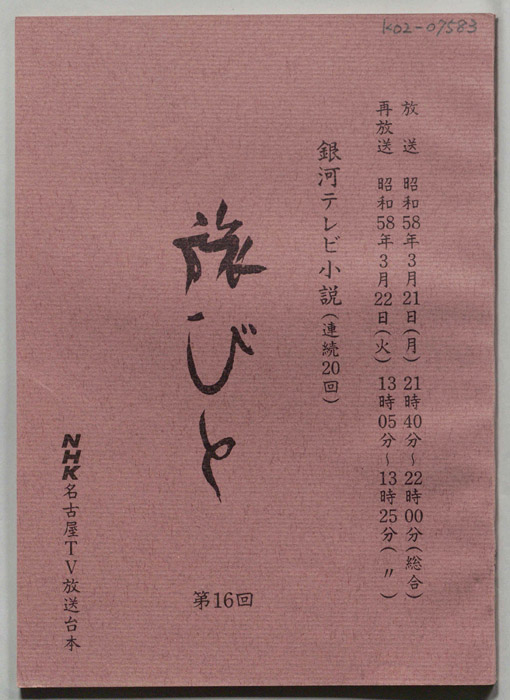 K02-07583
放送 昭和58年3月21日(月) 21時40分~22時00分(総合)
再放送 昭和58年3月22日(火) 13時05分~13時25分(〃)
銀河テレビ小説(連続20回)
旅びと
第16回
NHK名古屋TV放送台本